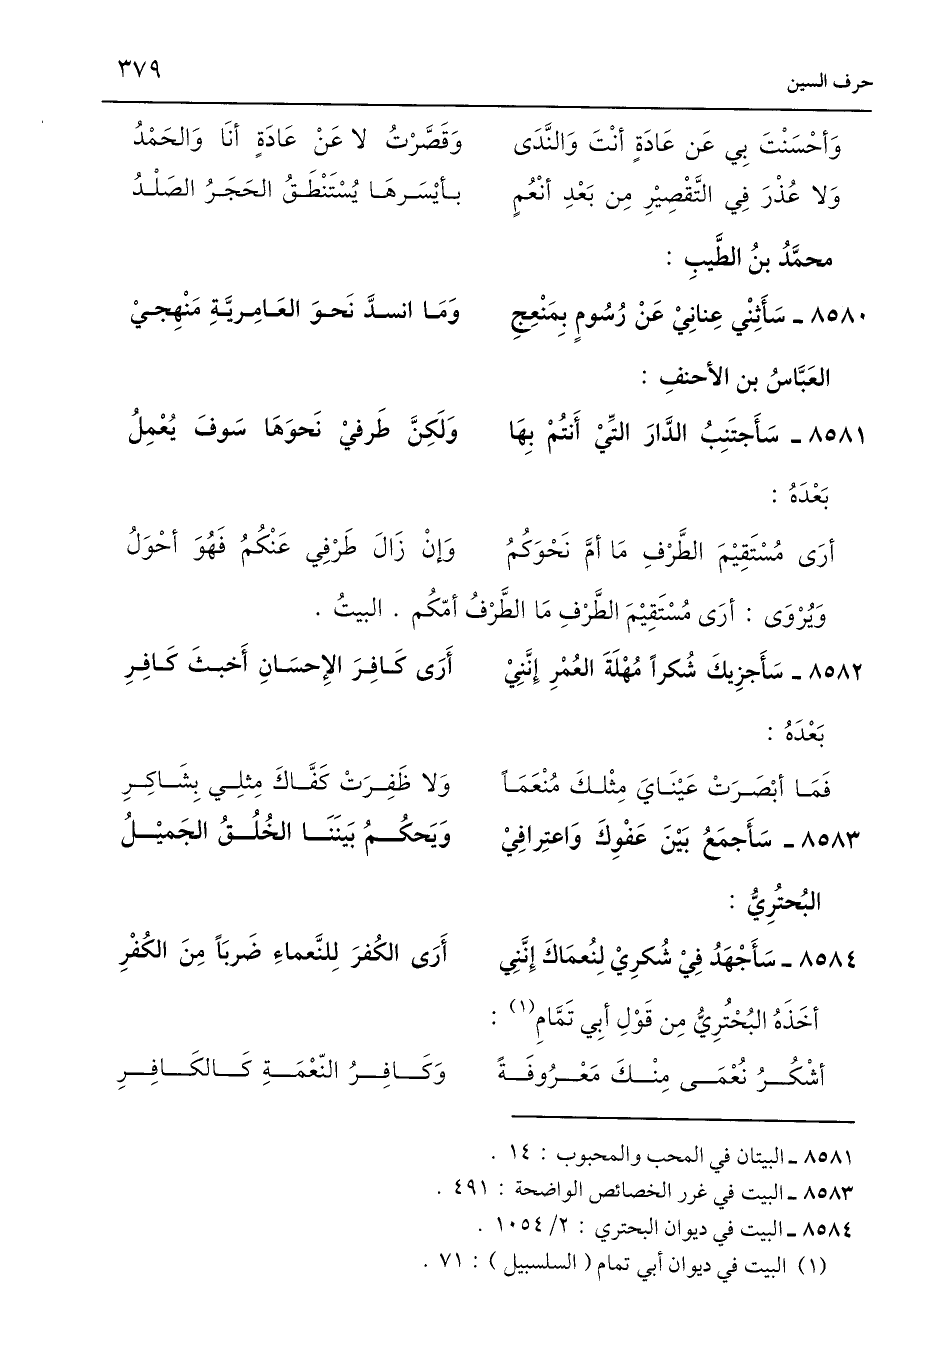 حرف السين ٣٧٩
وَأحْسَنْتَ بِي عَن عَادَةٍ أنْتَ وَالنَّدَى وَقَصَّرْتُ لا عَنْ عَادَةٍ أنَا وَالحَمْدُ
وَلا عُذْرَ فِي التَّقْصِيْرِ مِن بَعْدِ أنْعُمٍ بـأيْسَـرِهَـا يُسْتَنْطَـقُ الحَجَـرُ الصَـلْـدُ
محمَّدُ بنُ الطَّيبِ :
٨٥٨٠ ـ سَأَثِنْي عِنانِيْ عَنْ رُسُومٍ بِمَنْعِجِ وَمَـا انسـدَّ نَحـوَ العَـامِـريَّـةِ مَنْهجِـيْ
العَبَّاسُ بن الأحنفِ :
٨٥٨١ ـ سَأَجتَنِبُ الدَّارَ التِّيْ أَنتُمْ بِهَا وَلَكِنَّ طَرفيْ نَحوَهَا سَوفَ يُعْمِلُ
بَعْدَهُ :
أرَى مُسْتَقِيْمَ الطَّرْفِ مَا أمَّ نَحْوَكُمُ وَإنْ زَالَ طَرْفِي عَنْكُمُ فَهُوَ أحْوَلُ
وَيُرْوَى : أرَى مُسْتَقِيْمَ الطَّرْفِ مَا الطَّرْفُ أمّكُم . البيتُ .
٨٥٨٢ ـ سَأَجزِيكَ شُكراً مُهْلَةَ العُمْرِ إِنَّنِيْ أَرَى كَـافِـرَ الإِحسَـانِ أَخبـثَ كَـافِـرِ
بَعْدَهُ :
فَمَـا أبْصَـرَتْ عَيْنَـايَ مِثْلـكَ مُنْعَمَـاً وَلا ظَفِـرَتْ كَفَّـاكَ مِثلِـي بِشَـاكِـرِ
٨٥٨٣ ـ سَأَجمَعُ بَيْنَ عَفْوِكَ وَاعتِرافِيْ وَيَحكُـمُ بَينَنَـا الخُلُـقُ الجَمِيْـلُ
البُحتُرِيُّ :
٨٥٨٤ ـ سَأَجْهَدُ فِيْ شُكرِيْ لِنُعمَاكَ إِنَّنِي أَرَى الكُفرَ لِلنَّعماءِ ضَرباً مِنَ الكُفْرِ
أخَذَهُ البُحْتُرِيُّ مِن قَوْلِ أبِي تَمَّامٍ(١) :
أشْكُـرُ نُعْمَـى مِنْـكَ مَعْـرُوفَـةً وَكَـافِـرُ النّعْمَـةِ كَـالكَـافِـرِ
٨٥٨١ ـ البيتان في المحب والمحبوب : ١٤ .
٨٥٨٣ ـ البيت في غرر الخصائص الواضحة : ٤٩١ .
٨٥٨٤ ـ البيت في ديوان البحتري : ٢/ ١٠٥٤ .
(١) البيت في ديوان أبي تمام ( السلسبيل ) : ٧١ .